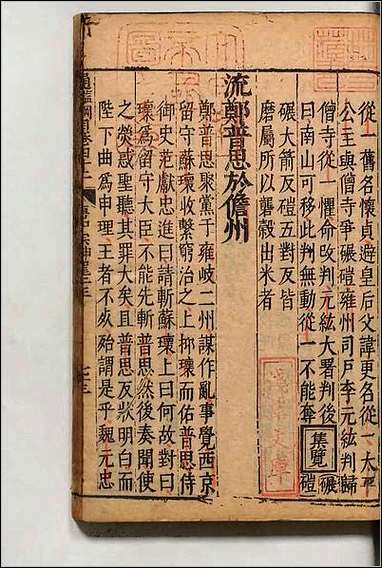 從一舊名懷貞避皇后父諱更名從一太平
公主與僧寺爭碾磑雍州司戶李元紘判歸
僧寺從一懼命攺判元紘大署判後
曰南山可移此判無動從一不能奪
集覽
碾磑
碾大箭反磑五對反皆
磨屬所以礱穀出米者
流鄭普思於儋州
鄭普思聚黨于雍岐二州謀作亂事覺西京
留守蘇瓌收繫窮治之上抑瓌而佑普思侍
御史范獻忠進曰請斬蘇瓌上曰何故對曰
瓌爲留守大臣不能先斬普思然後奏聞使
之熒惑聖聽其罪大矣且普思反狀明白而
陛下曲爲申理王者不死殆謂是乎魏元忠
通鑑綱目卷四十二
七三